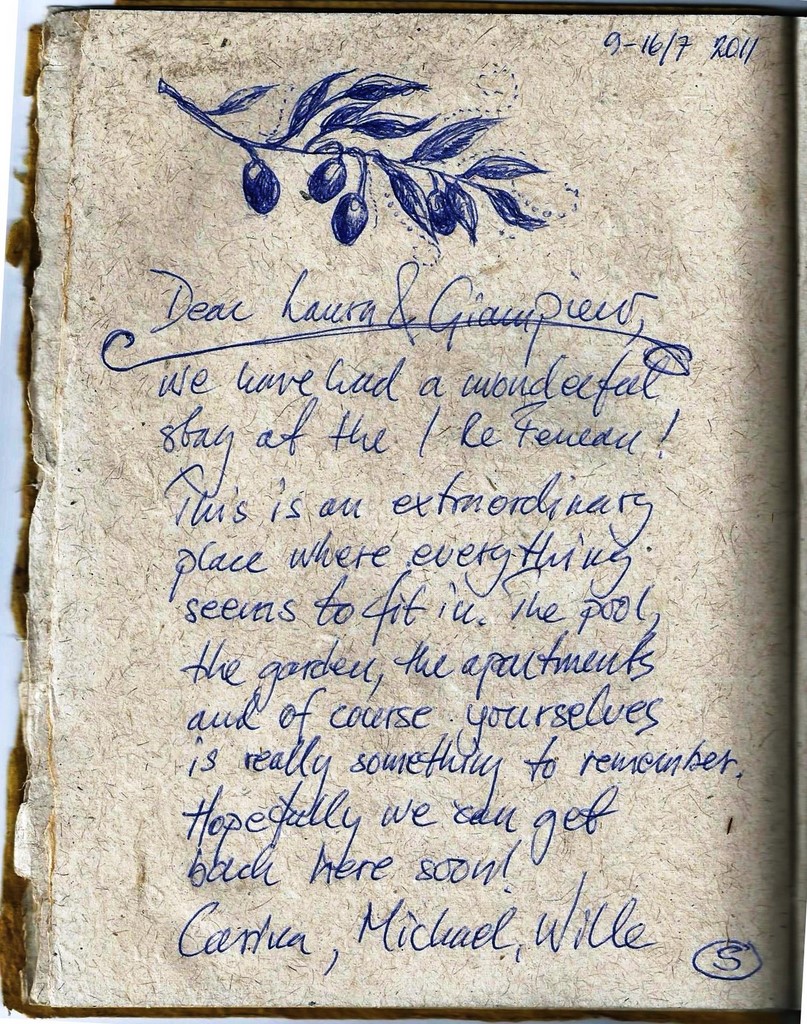 9-16/7 2011
Dear Laura & Giampiero,
we have had a wonderful
stay at the I Re
This is an extraordinary
place where everything
seems to fit in. The pool,
the garden, the apartments
and of course yourselves
is really something to remember.
Hopefully we can get
back here soon!
Carina, Michael, Wille
S